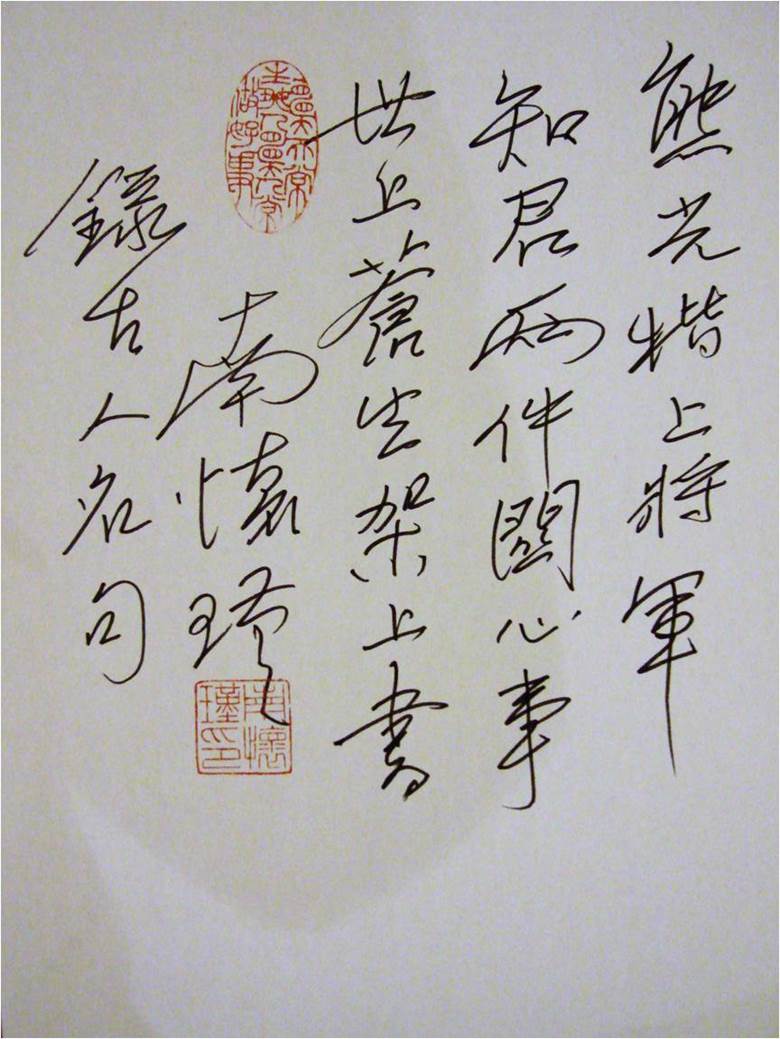 熊光楷上將軍
知君兩件關心事
世上蒼生架上書
南懷瑾
錄古人名句
做好事
南懷瑾印